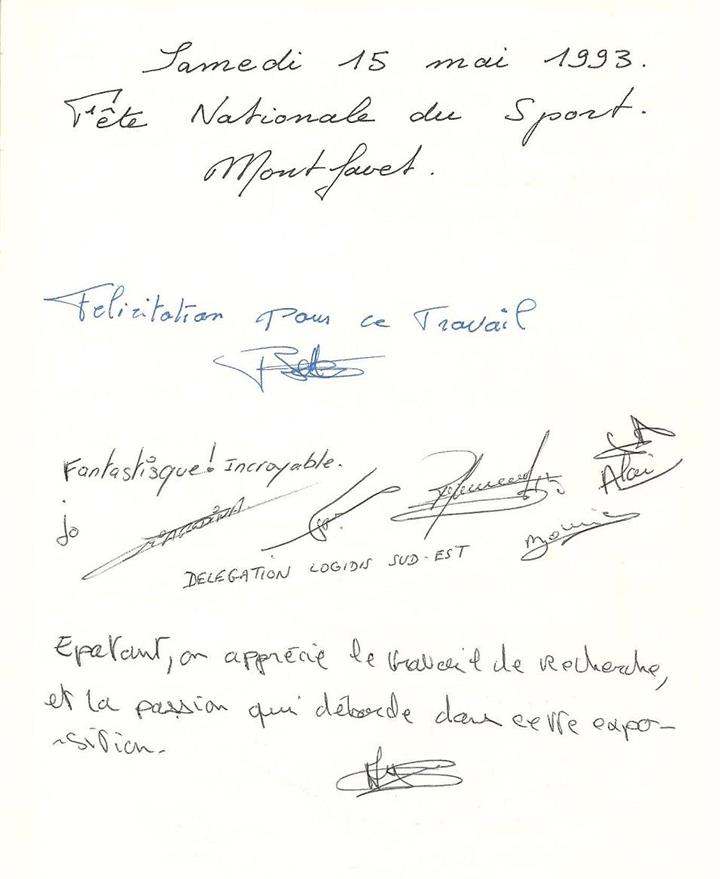 Samedi 15 mai 1993.
Fête Nationale du Sport.
Montfavet.
Felicitation pour ce Travail
Fantastisque! Incroyable.
jo
Alai
DELEGATION LOGIDIS SUD-EST
Epatant, on apprécie le travail de recherche,
et la passion qui déborde dans cette expo-
-sition.